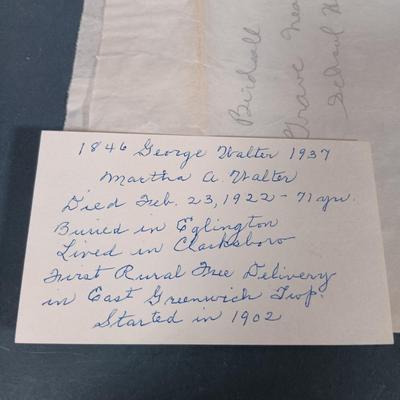 1846 George Walter 1937
Martha A. Walter
Died Feb. 23, 1922 - 71 yr.
Buried in Eglington
Lived in Clarksboro
First Rural Free Delivery
in East Greenwich Twp.
Started in 1902
Birdsall
Grave Near
School